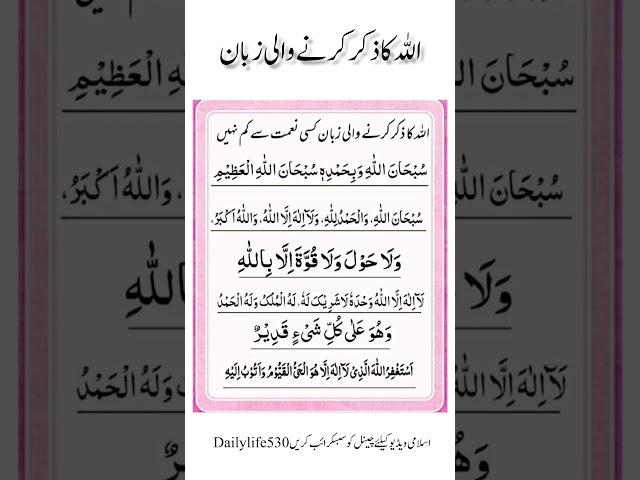 اللہ کا ذکر کرنے والی زبان
اللہ کا ذکر کرنے والی زبان کسی نعمت سے کم نہیں
سُبْحَانَ اللّٰهِ وَبِحَمْدِهٖ سُبْحَانَ اللّٰهِ الْعَظِيْمِ
سُبْحَانَ اللّٰهِ، وَالْحَمْدُلِلّٰهِ، وَلَآ اِلٰهَ اِلَّا اللّٰهُ، وَاللّٰهُ اَكْبَرُ،
وَلَا حَوْلَ وَلَا قُوَّةَ اِلَّا بِاللّٰهِ
لَآ اِلٰهَ اِلَّا اللّٰهُ وَحْدَهٗ لَا شَرِيْكَ لَهٗ، لَهُ الْمُلْكُ وَلَهُ الْحَمْدُ
وَهُوَ عَلٰى كُلِّ شَیْءٍ قَدِيْرٌ
اَسْتَغْفِرُ اللّٰهَ الَّذِىْ لَآ اِلٰهَ اِلَّا هُوَ الْحَىُّ الْقَيُّوْمُ وَاَتُوْبُ اِلَيْهِ
اسلامی ویڈیو کیلئے چینل کو سبسکرائب کریں Dailylife530